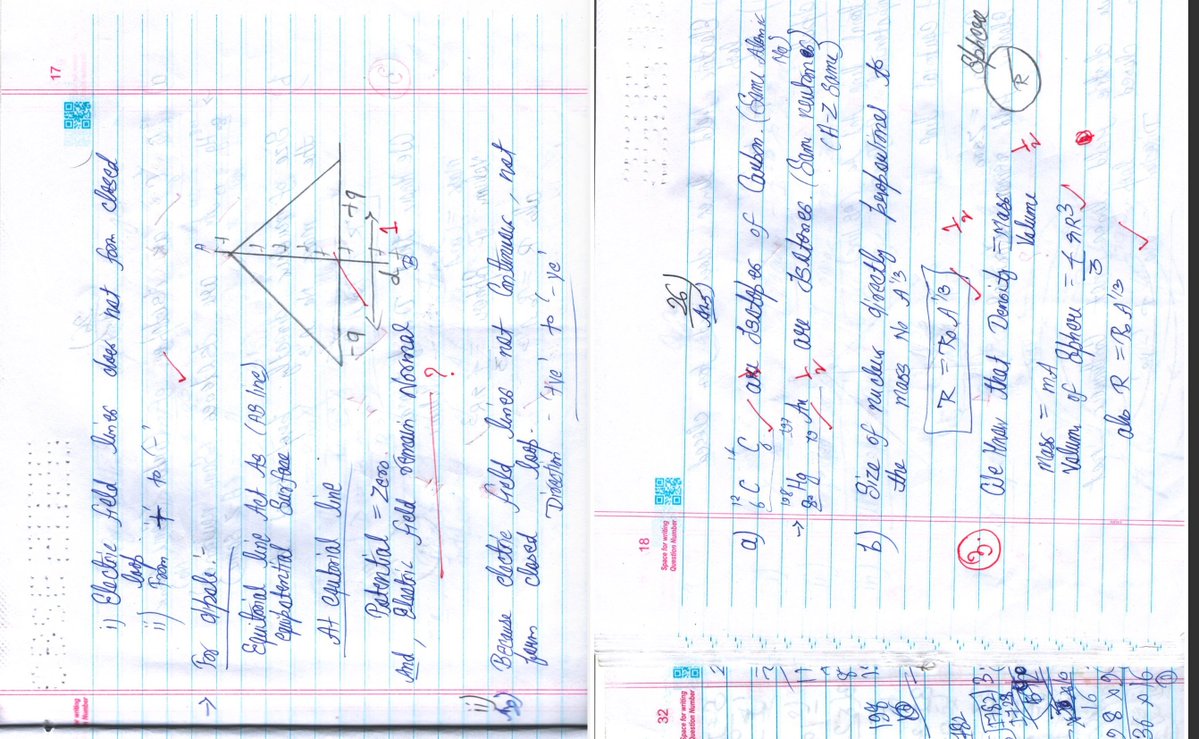 17
i) Electric field lines does not form closed
loop
ii) From '+' to '-'
→ For dipole :-
Equitorial line Act As (AB line)
equipotential Surface
At equitorial line
Potential = Zero.
And, Electric field remain Normal
?
A
-q
+q
d
B
1
ii)
Because electric field lines not Continuous, not
form closed loop.
Direction - '+ve' to '-ve'
18
Space for writing
Question Number
26)
Ans)
a) 12 6 C 14 6 C are Isotopes of Carbon. (Same Atomic No)
→ 198 80 Hg 197 79 Au are Isotones (Same neutrons) 1/2
(A-Z same)
b) Size of nucleus directly proportional to
the mass No A^1/3
R = R₀ A^1/3 1/2
We know that Density = Mass / Volume 1/2
Mass = mA
Volume of Sphere = 4/3 πR³
also R = R₀ A^1/3
Sphere
R
3
32
Space for writing
Question Number